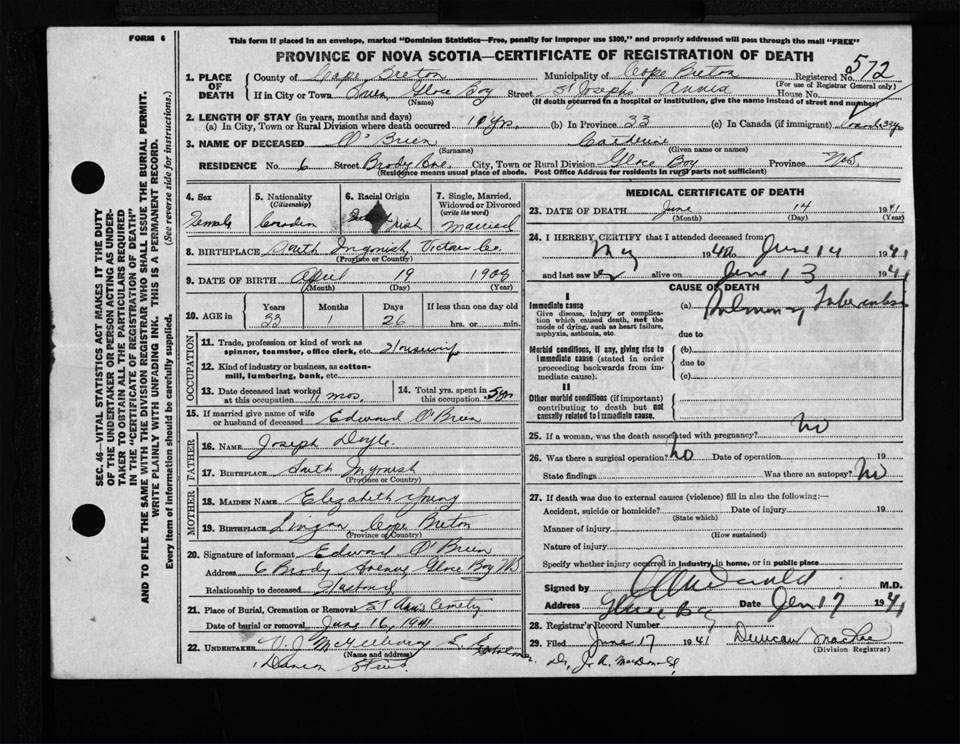 FORM 6
This form if placed in an envelope, marked "Dominion Statistics—Free, penalty for improper use $300," and properly addressed will pass through the mail "FREE"
PROVINCE OF NOVA SCOTIA—CERTIFICATE OF REGISTRATION OF DEATH
572
1. PLACE OF DEATH
County of Cape Breton Municipality of Cape Breton Registered No.
(For use of Registrar General only)
If in City or Town Town Glace Bay Street St Josephs Annex House No.
(Name) (If death occurred in a hospital or institution, give the name instead of street and number)
2. LENGTH OF STAY (in years, months and days)
(a) In City, Town or Rural Division where death occurred 10 yrs. (b) In Province 33 (c) In Canada (if immigrant)
3. NAME OF DECEASED O'Brien Catherine
(Surname) (Given name or names)
RESIDENCE No. 6 Street Brody Ave. City, Town or Rural Division Glace Bay Province N.S.
(Residence means usual place of abode. Post Office Address for residents in rural parts not sufficient)
4. Sex Female
5. Nationality (Citizenship) Canadian
6. Racial Origin Irish
7. Single, Married, Widowed or Divorced (write the word) Married
8. BIRTHPLACE South Ingonish, Victoria Co.
(Province or Country)
9. DATE OF BIRTH April 19 1908
(Month) (Day) (Year)
10. AGE in Years Months Days If less than one day old
33 1 26 hrs. or min.
OCCUPATION
11. Trade, profession or kind of work as spinner, teamster, office clerk, etc. Housewife
12. Kind of industry or business, as cotton-mill, lumbering, bank, etc.
13. Date deceased last worked at this occupation 11 mos.
14. Total yrs. spent in this occupation 5 yrs
15. If married give name of wife or husband of deceased Edward O'Brien
FATHER
16. NAME Joseph Doyle
17. BIRTHPLACE South Ingonish
(Province or Country)
MOTHER
18. MAIDEN NAME Elizabeth Young
19. BIRTHPLACE Lingan Cape Breton
(Province or Country)
20. Signature of informant Edward O'Brien
Address 6 Brody Avenue, Glace Bay NS
Relationship to deceased Husband
21. Place of Burial, Cremation or Removal St Ann's Cemetery
Date of burial or removal June 16, 1941
22. UNDERTAKER V. J. McGillivray
(Name and address)
MEDICAL CERTIFICATE OF DEATH
23. DATE OF DEATH June 14 1941
(Month) (Day) (Year)
24. I HEREBY CERTIFY that I attended deceased from
May 1940 to June 14 1941
and last saw alive on June 13 1941
CAUSE OF DEATH
I
Immediate cause (a) Pulmonary Tuberculosis
Give disease, injury or complication which caused death, not the mode of dying, such as heart failure, asphyxia, asthenia, etc
due to
Morbid conditions, if any, giving rise to immediate cause (stated in order proceeding backwards from immediate cause).
(b)
due to
(c)
II
Other morbid conditions (if important) contributing to death but not causally related to immediate cause.
25. If a woman, was the death associated with pregnancy? No
26. Was there a surgical operation? No Date of operation 19
State findings Was there an autopsy? No
27. If death was due to external causes (violence) fill in also the following:—
Accident, suicide or homicide? Date of injury 19
(State which)
Manner of injury
(How sustained)
Nature of injury
Specify whether injury occurred in industry, in home, or in public place
Signed by M.D.
Address Glace Bay Date Jun 17 1941
28. Registrar's Record Number
29. Filed June 17 1941 Duncan MacRae
(Division Registrar)
Dr. J. A. MacDonald
SEC. 46—VITAL STATISTICS ACT MAKES IT THE DUTY
OF THE UNDERTAKER OR PERSON ACTING AS UNDER-
TAKER TO OBTAIN ALL THE PARTICULARS REQUIRED
IN THE "CERTIFICATE OF REGISTRATION OF DEATH"
AND TO FILE THE SAME WITH THE DIVISION REGISTRAR WHO SHALL ISSUE THE BURIAL PERMIT.
WRITE PLAINLY WITH UNFADING INK. THIS IS A PERMANENT RECORD.
Every item of Information should be carefully supplied. (See reverse side for instructions.)